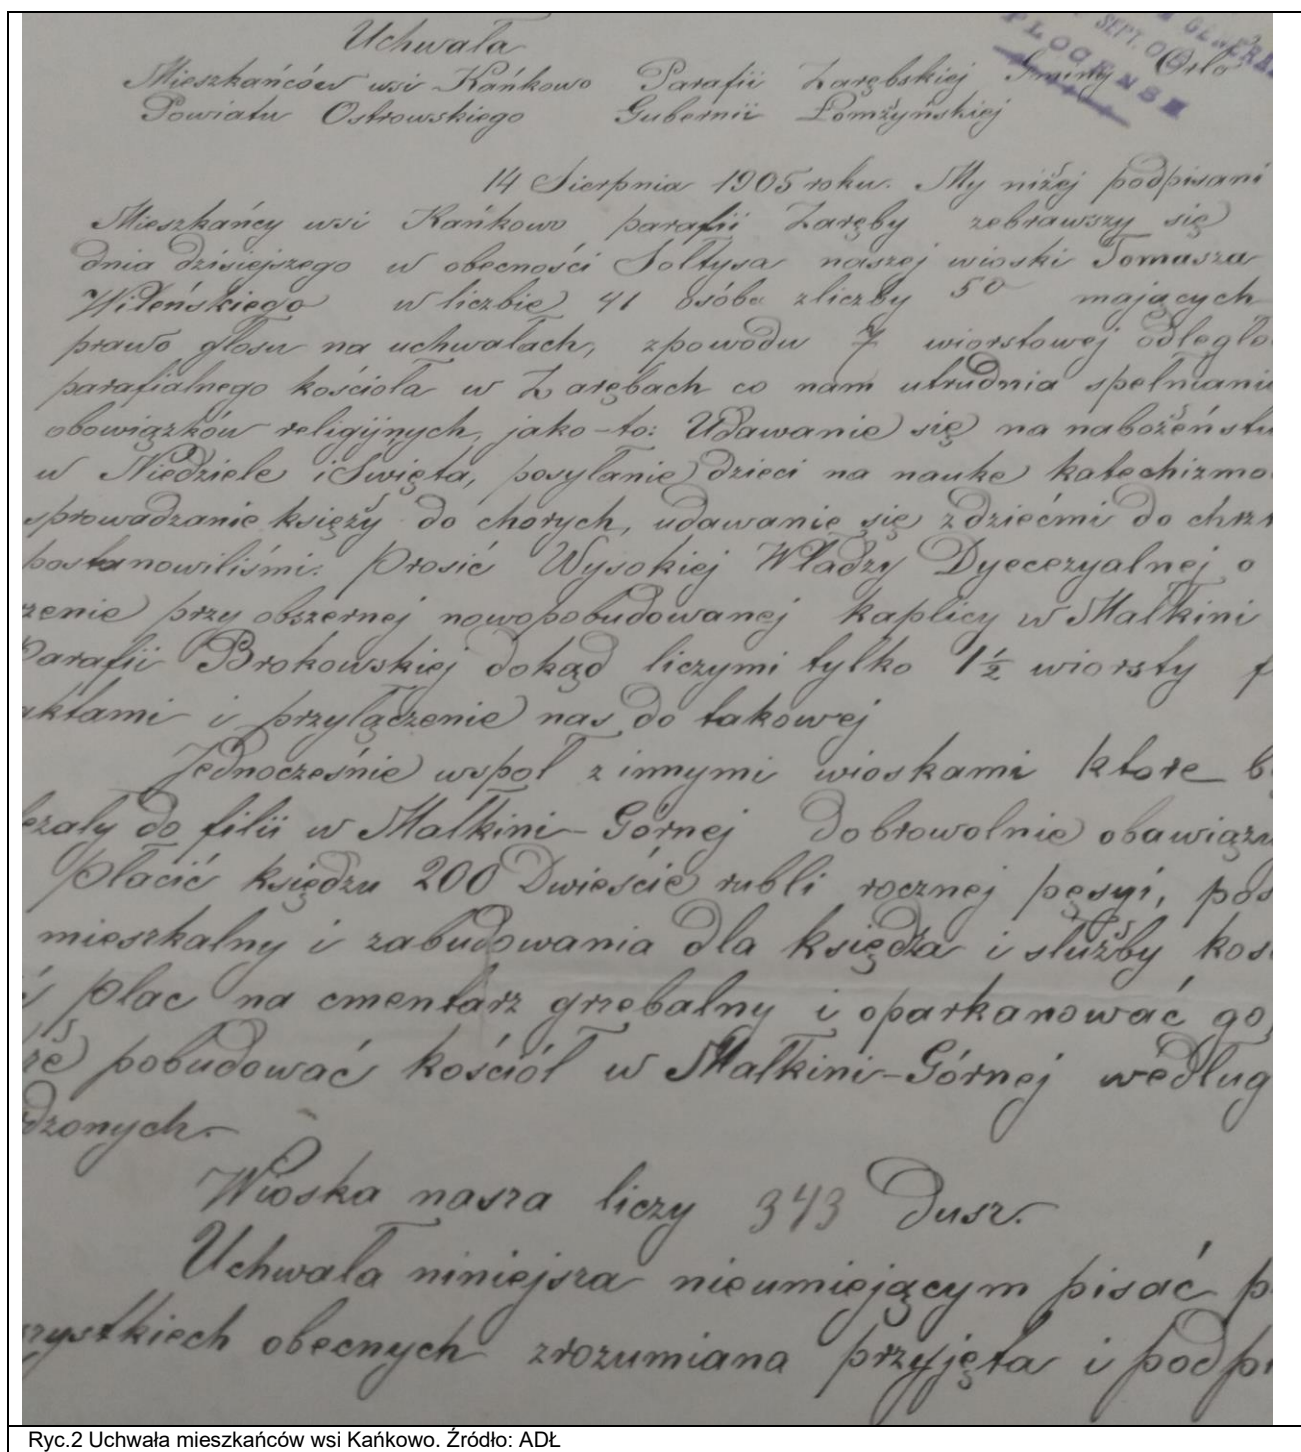 Uchwała
Mieszkańców wsi Kańkowo Parafii Zarębskiej Gminy Orło
GENERAL
SEPT.
PLOCENSM
Powiatu Ostrowskiego Gubernii Łomżyńskiej
14 Sierpnia 1905 roku. My niżej podpisani
Mieszkańcy wsi Kańkowo parafii Zaręby zebrawszy się
dnia dzisiejszego w obecności Sołtysa naszej wioski Tomasza
Wileńskiego w liczbie 41 osób z liczby 50 mających
prawo głosu na uchwałach, zpowodu 7 wiorstowej odległo
parafialnego kościoła w Zarębach co nam utrudnia spełnianie
obowiązków religijnych, jako-to: Udawanie się na nabożeństw
w Niedziele i Swięta, posyłanie dzieci na naukę katechizmo
sprowadzanie księży do chorych, udawanie się z dziećmi do chrz
postanowiliśmi. Prosić Wysokiej Władzy Dyecezyalnej o
zenie przy obszernej nowopobudowanej kaplicy w Małkini
Parafii Brokowskiej dokąd liczymi tylko 1½ wiorsty f
aktami i przyłączenie nas do takowej
Jednocześnie wspoł z innymi wioskami ktore b
leżały do filii w Małkini-Górnej dobrowolnie obawiązu
płacić księdzu 200 Dwieście rubli rocznej pęsyi, pos
mieszkalny i zabudowania dla księdza i służby koś
ć plac na cmentarz grzebalny i oparkanować go,
że pobudować kościół w Małkini-Górnej według
dzonych.
Wioska nasza liczy 343 dusz.
Uchwała niniejsza nieumiejącym pisać p
szystkiech obecnych zrozumiana przyjęta i podpi
Ryc.2 Uchwała mieszkańców wsi Kańkowo. Źródło: ADŁ